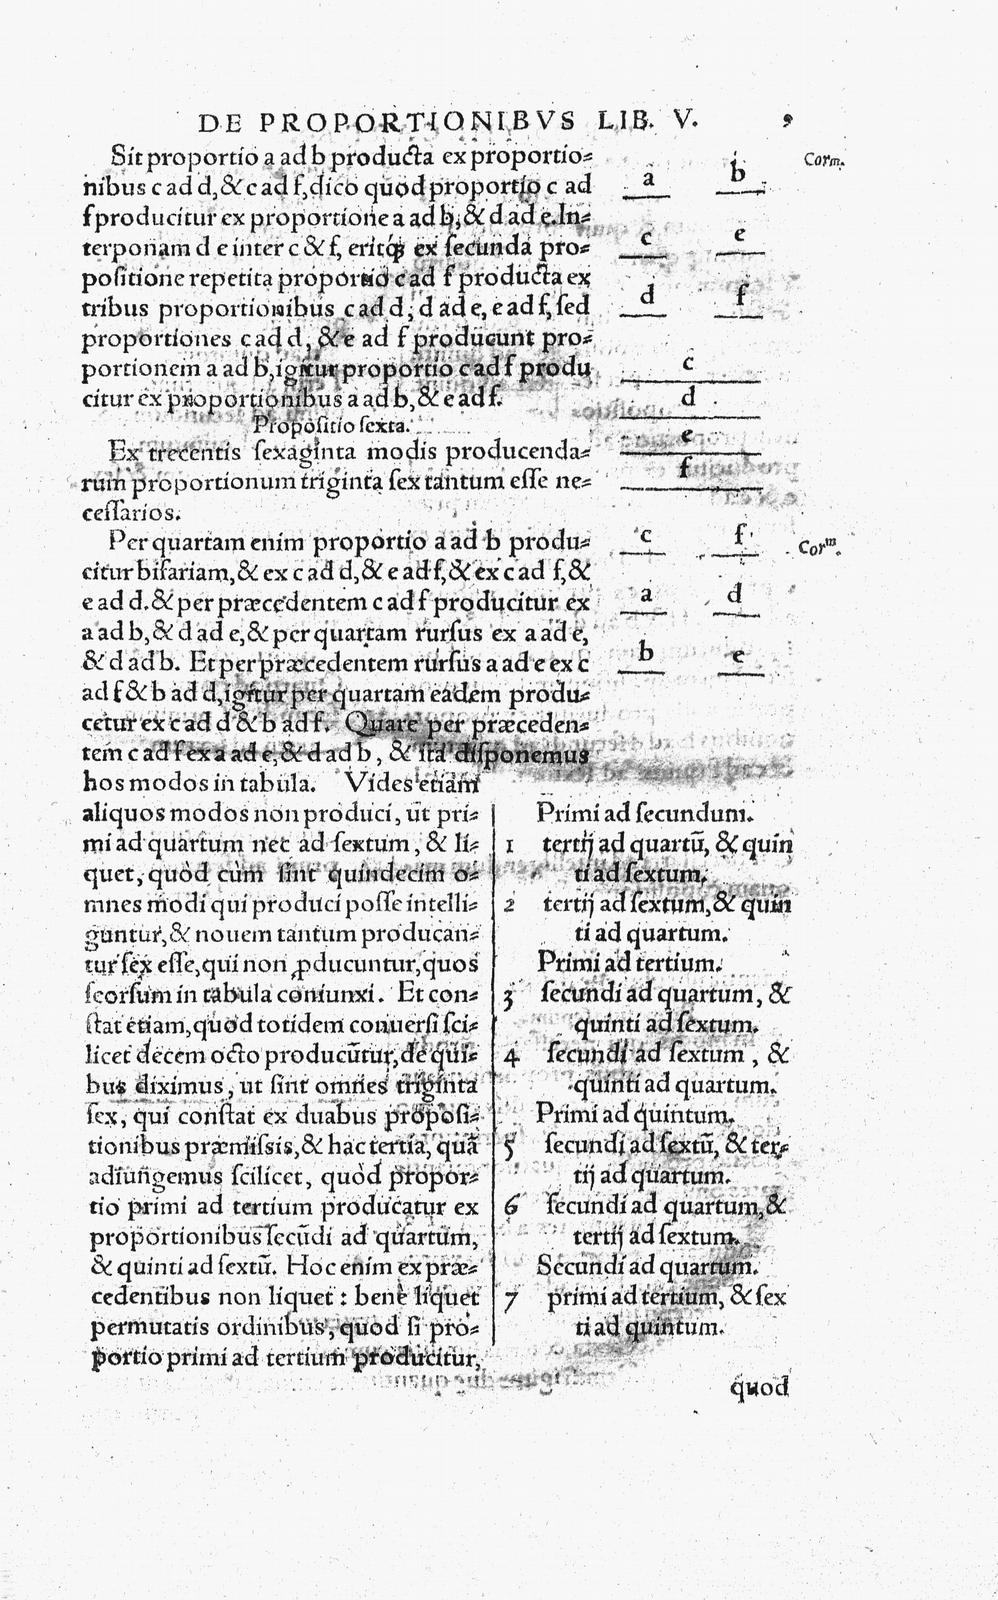 DE PROPORTIONIBVS LIB. V. 9
Corm.
Sit proportio a ad b producta ex proportio-
nibus c ad d, & c ad f, dico quod proportio c ad
f producitur ex proportione a ad b, & d ad e. In-
terponam d e inter c & f, eritq́; ex secunda pro-
positione repetita proportio c ad f producta ex
tribus proportionibus c ad d, d ad e, e ad f, sed
proportiones c ad d, & e ad f producunt pro-
portionem a ad b, igitur proportio c ad f produ
citur ex proportionibus a ad b, & e ad f.
a b
c e
d f
c
d
e
f
Propositio sexta.
Ex trecentis sexaginta modis producenda-
rum proportionum triginta sex tantum esse ne-
cessarios.
Per quartam enim proportio a ad b produ-
citur bifariam, & ex c ad d, & e ad f, & ex c ad f, &
e ad d. & per præcedentem c ad f producitur ex
a ad b, & d ad e, & per quartam rursus ex a ad e,
& d ad b. Et per præcedentem rursus a ad e ex c
ad f & b ad d, igitur per quartam eadem produ-
cetur ex c ad d & b ad f. Quare per præceden-
tem c ad f ex a ad e, & d ad b, & ita disponemus
hos modos in tabula. Vides etiam
c f
a d
b e
Corm.
aliquos modos non produci, ut pri-
mi ad quartum nec ad sextum, & li-
quet, quòd cùm sint quindecim o-
mnes modi qui produci posse intelli-
guntur, & nouem tantum producan-
tur sex esse, qui non ꝓducuntur, quos
seorsum in tabula coniunxi. Et con-
stat etiam, quod totidem conuersi sci-
licet decem octo producūtur, de qui-
bus diximus, ut sint omnes triginta
sex, qui constat ex duabus proposi-
tionibus præmissis, & hac tertia, quã
adiungemus scilicet, quòd propor-
tio primi ad tertium producatur ex
proportionibus secūdi ad quartum,
& quinti ad sextū. Hoc enim ex præ-
cedentibus non liquet: benè liquet
permutatis ordinibus, quod si pro-
portio primi ad tertium producitur,
Primi ad secundum.
1 tertij ad quartū, & quin
ti ad sextum.
2 tertij ad sextum, & quin
ti ad quartum.
Primi ad tertium.
3 secundi ad quartum, &
quinti ad sextum.
4 secundi ad sextum, &
quinti ad quartum.
Primi ad quintum.
5 secundi ad sextū, & ter-
tij ad quartum.
6 secundi ad quartum, &
tertij ad sextum.
Secundi ad quartum.
7 primi ad tertium, & sex
ti ad quintum.
quod